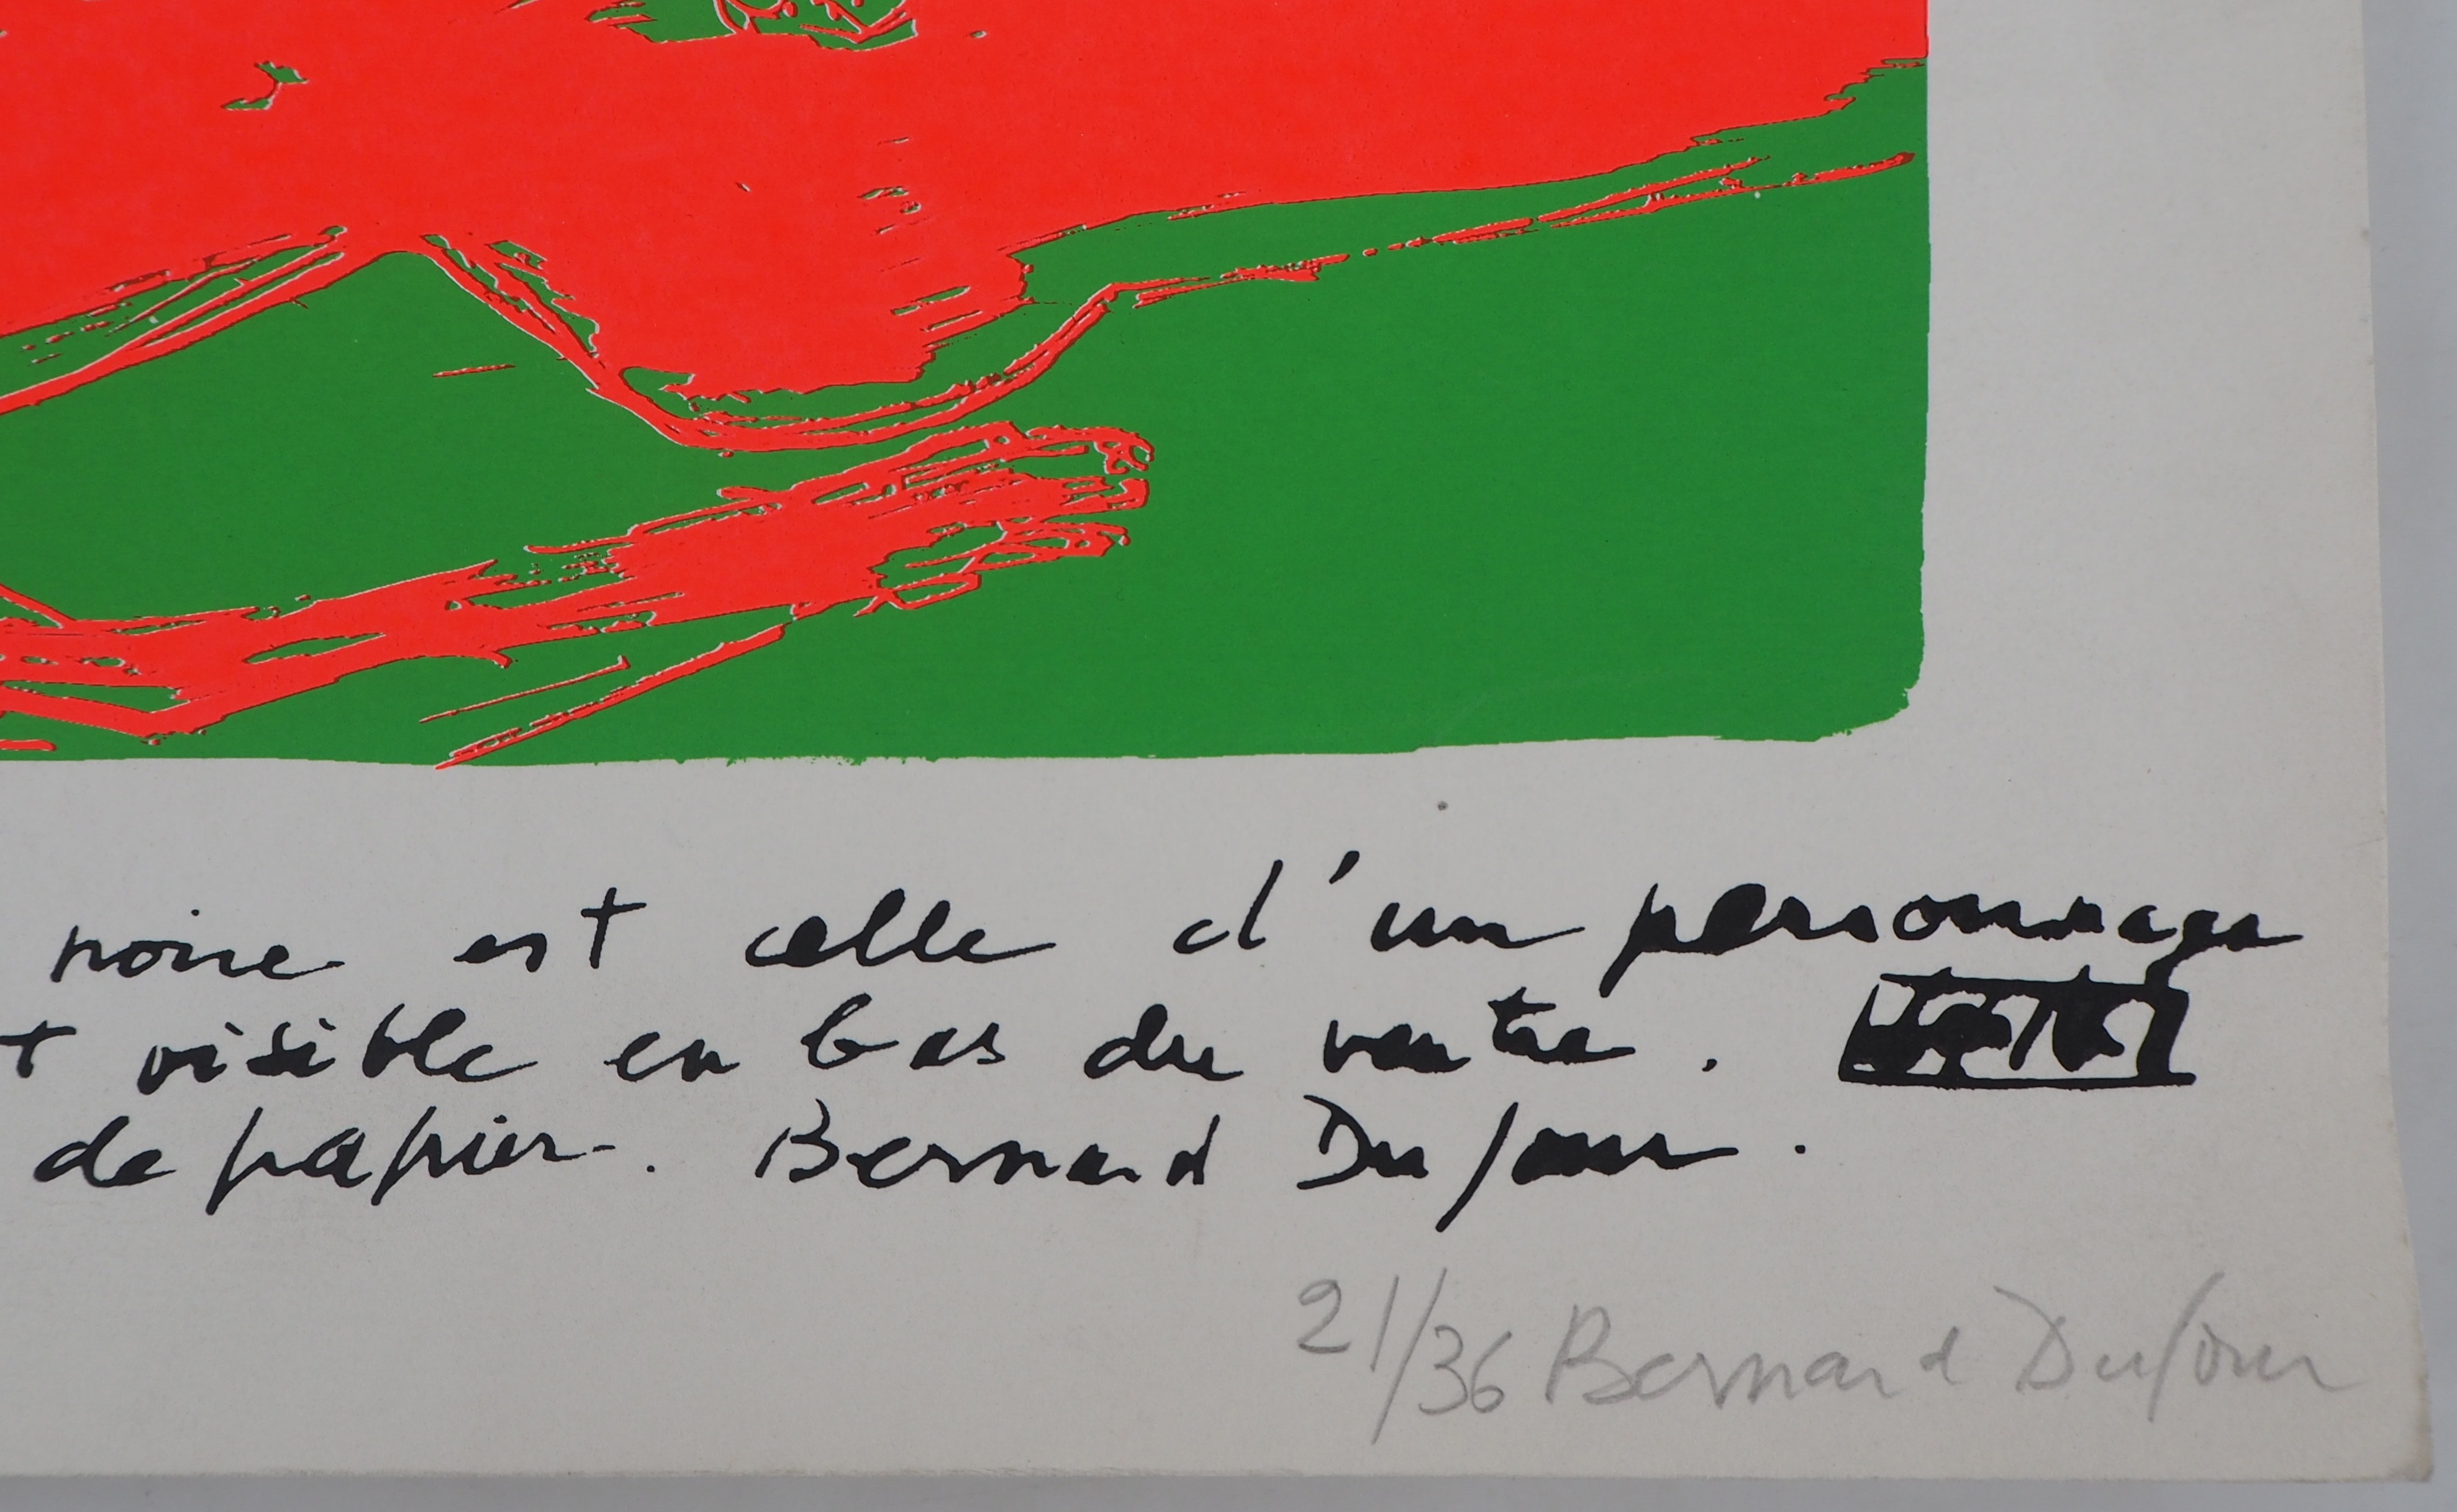 noire est celle d'un personnage
t visible en bas du ventre.
de papier. Bernard Dufour.
21/36 Bernard Dufour